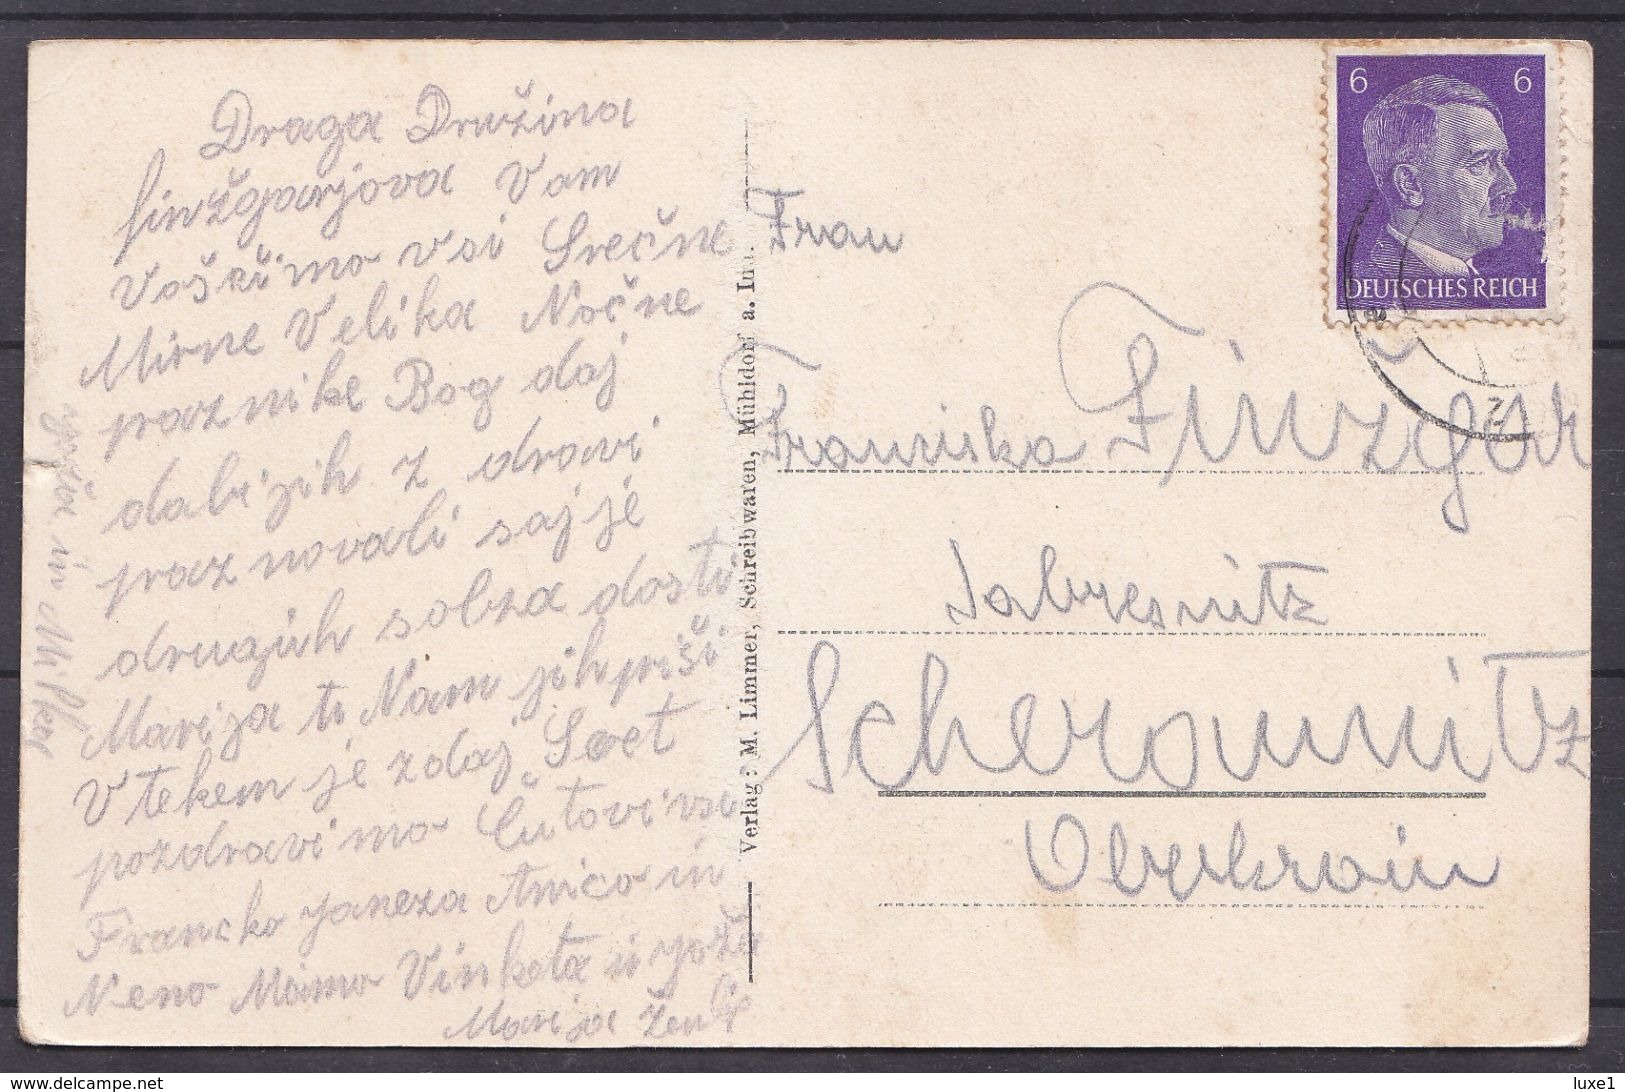 Draga Družina
finžgarjova Vam
Voščimo vsi Srečne
Mirne Velika Nočne
praznike Bog daj
da bi jih z dravi
praznovali saj je
drugih solza dosti
Marija ti Nam jih priši
V tekem je zdaj Svet
pozdravimo
Francko Janeza Anico in
Neno Mamo Vinketa in joža
Marija
joža in Milka
Verlag: M. Limmer, Schreibwaren, Mühldorf a. Inn.
6 6
DEUTSCHES REICH
Frau
Franziska Finžgar
Sabresnitz
Scheraunitz
Oberkrain
delcampe.net
luxe1